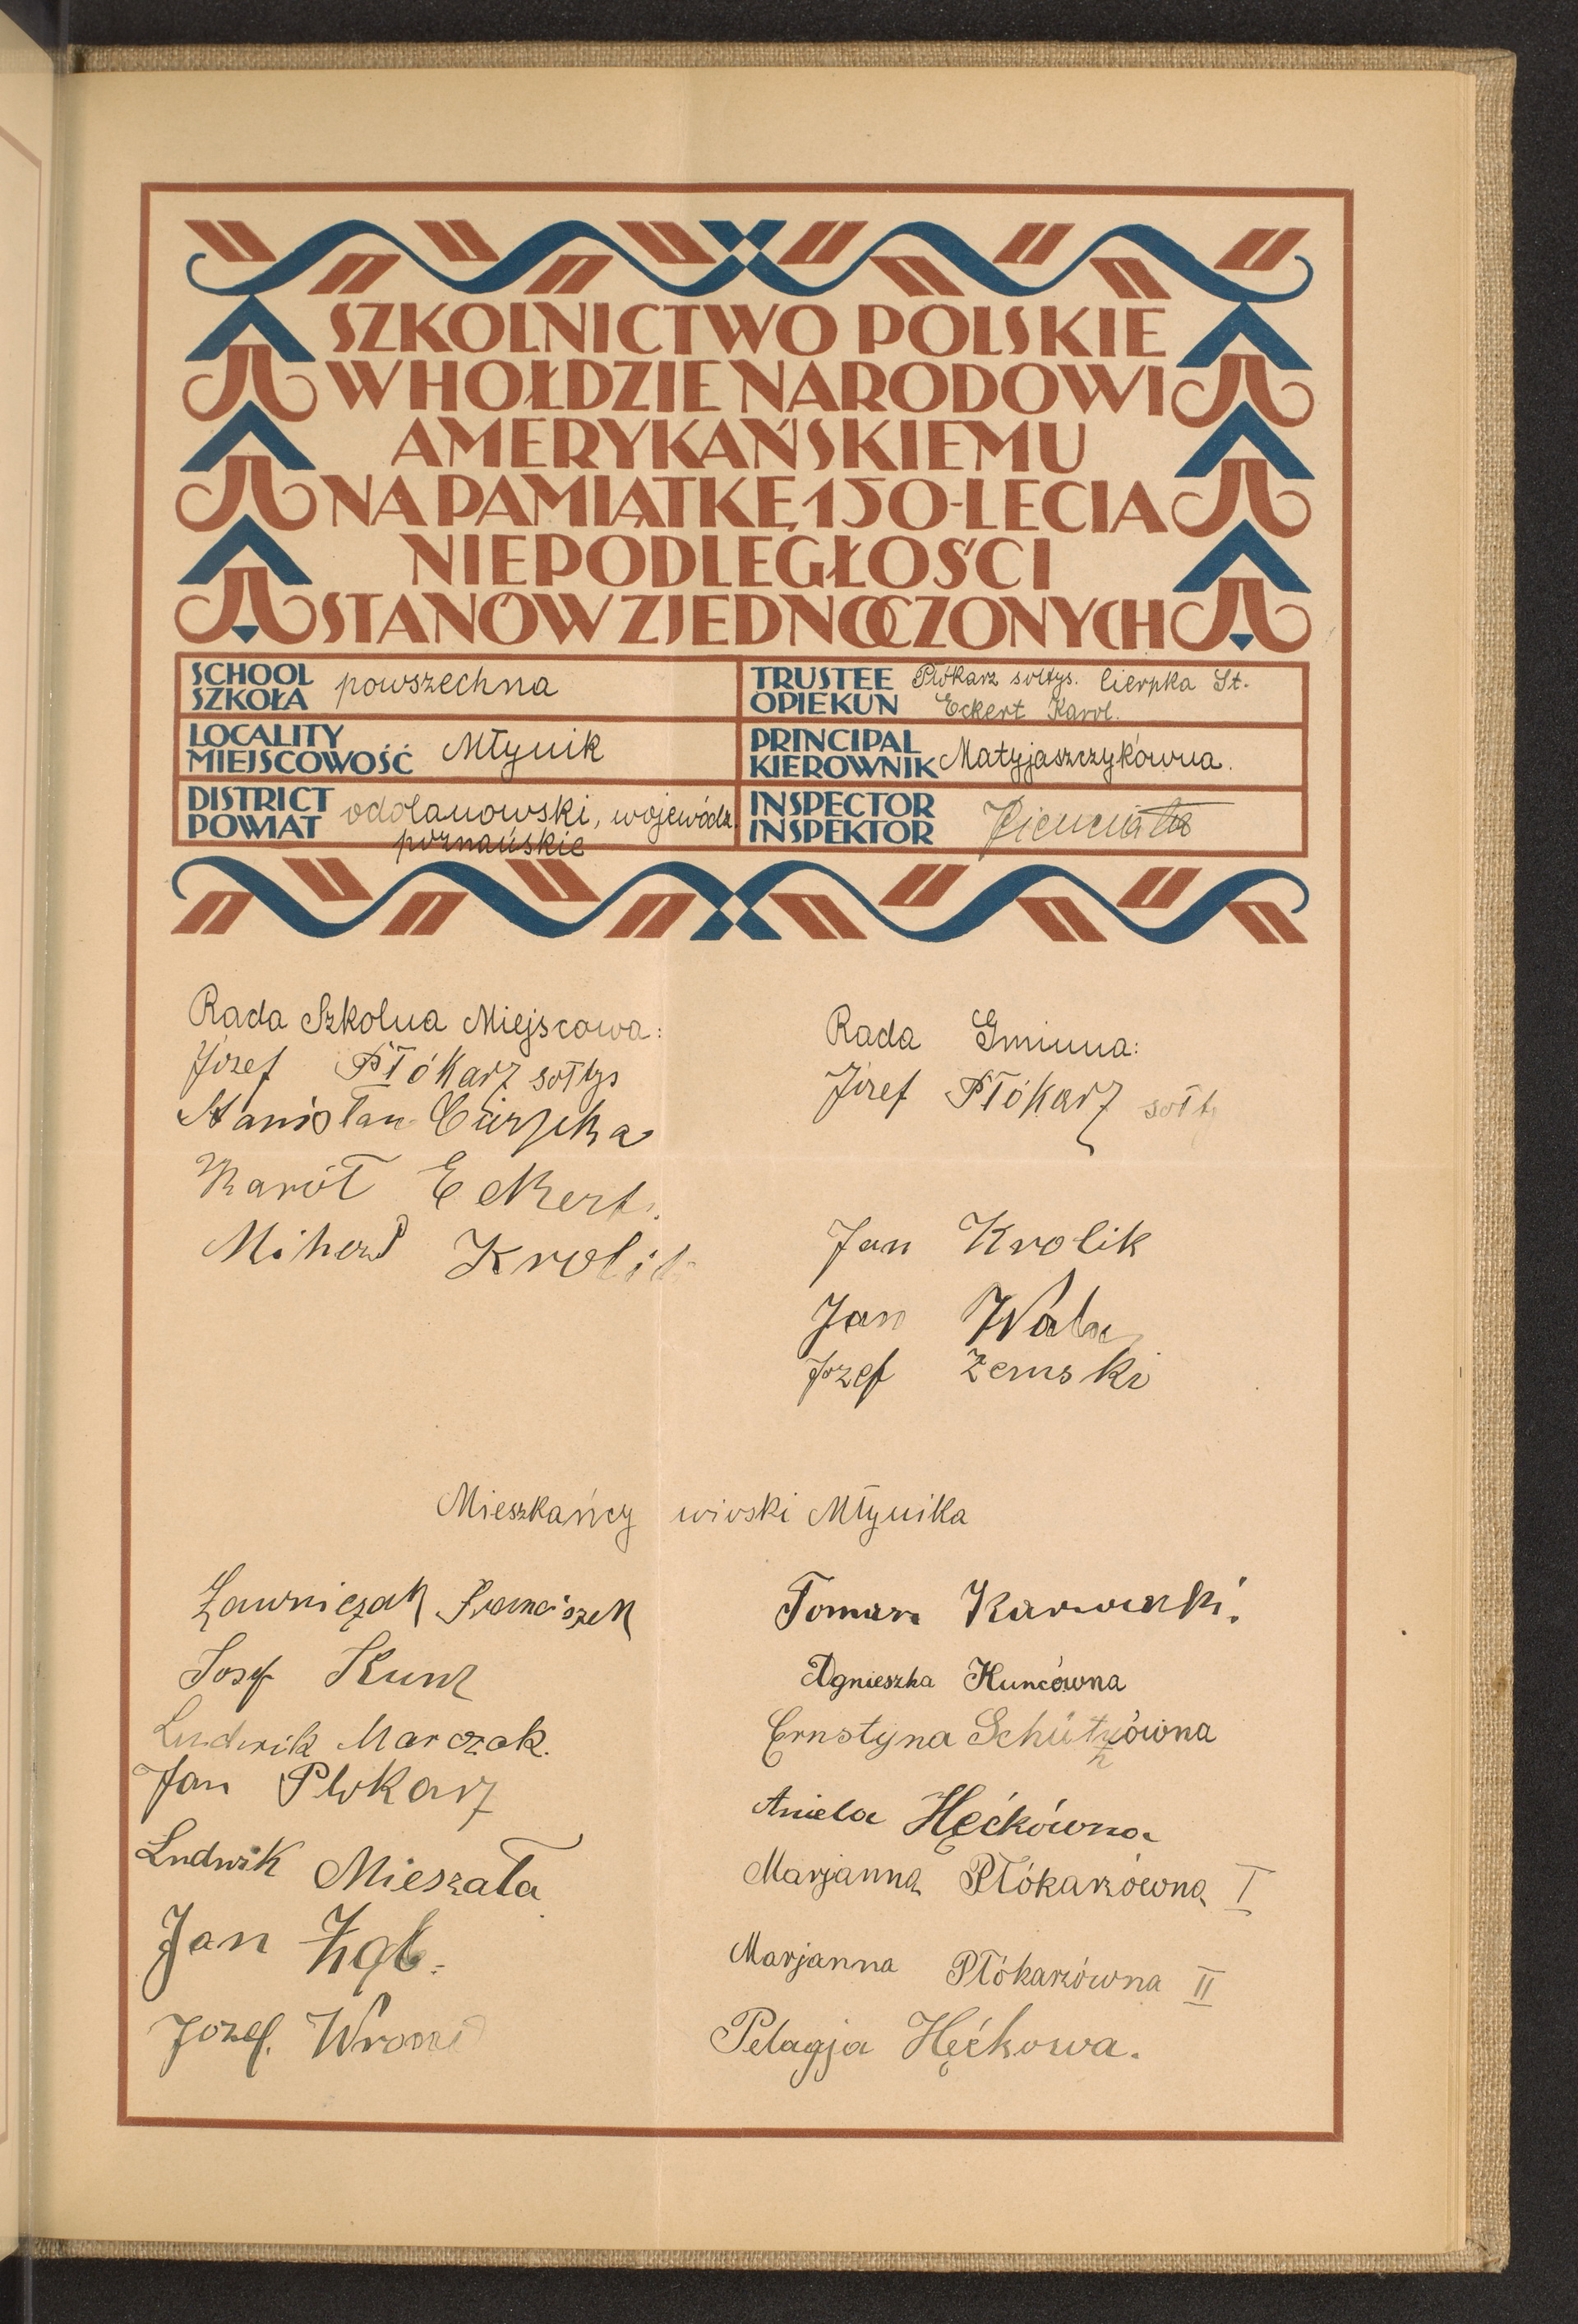 SZKOLNICTWO POLSKIE
W HOŁDZIE NARODOWI
AMERYKAŃSKIEMU
NA PAMIĄTKĘ 150-LECIA
NIEPODLEGŁOŚCI
STANÓW ZJEDNOCZONYCH
SCHOOL
SZKOŁA powszechna
TRUSTEE Płókarz sołtys. Cierpka St.
OPIEKUN Eckert Karol.
LOCALITY
MIEJSCOWOŚĆ Młynik
PRINCIPAL
KIEROWNIK Matyjaszczykówna.
DISTRICT
POWIAT odolanowski, wojewódz.
poznańskie
INSPECTOR
INSPEKTOR
Rada Szkolna Miejscowa:
Józef Płókarz sołtys
Stanisław Cierpka
Karół Eckert.
Krolik
Rada Gminna:
Józef Płókarz sołty
Jan Krolik
Jan Wala
Józef Zemski
Mieszkańcy wioski Młynika
Ławniczak Franciszek
Josef Kunz
Ludwik Marczak.
Jan Plokarz
Ludwik Mieszała
Jan
Jozef.
Tomasz
Agnieszka Kuncówna
Ernstyna Schützówna
Aniela Hęćkówna
Marjanna Płókarzówna I
Marjanna Płókarzówna II
Pelagja Hęćkowa.